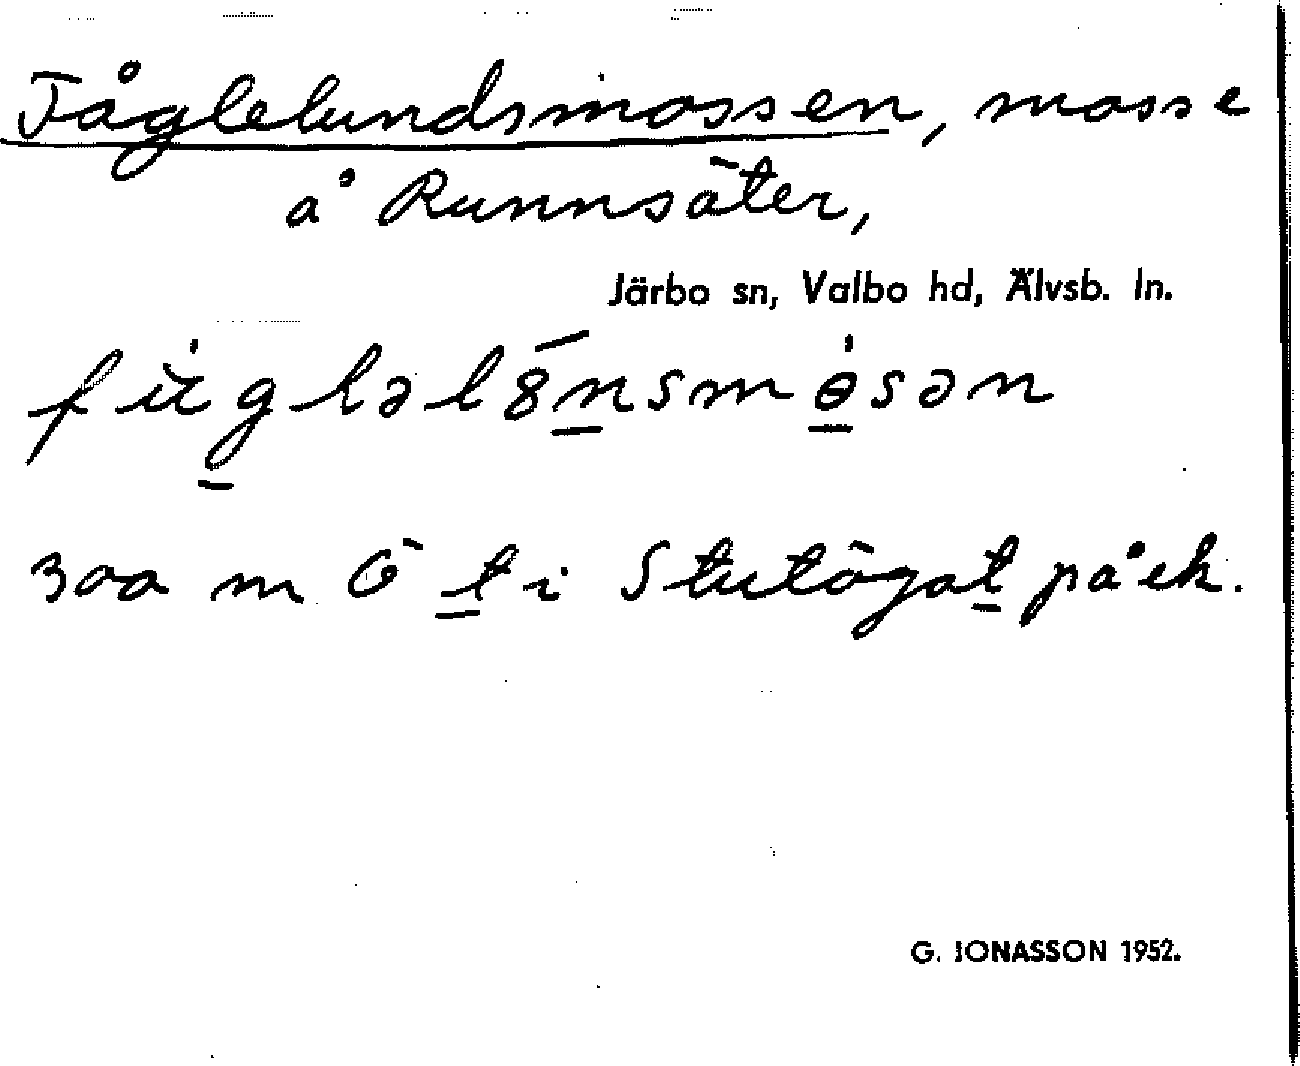 Fåglelundsmossen, mosse
å Runnsäter,
Järbo sn, Valbo hd, Älvsb. ln.
300 m Ö t i Stutögat på ek.
G. IONASSON 1952.